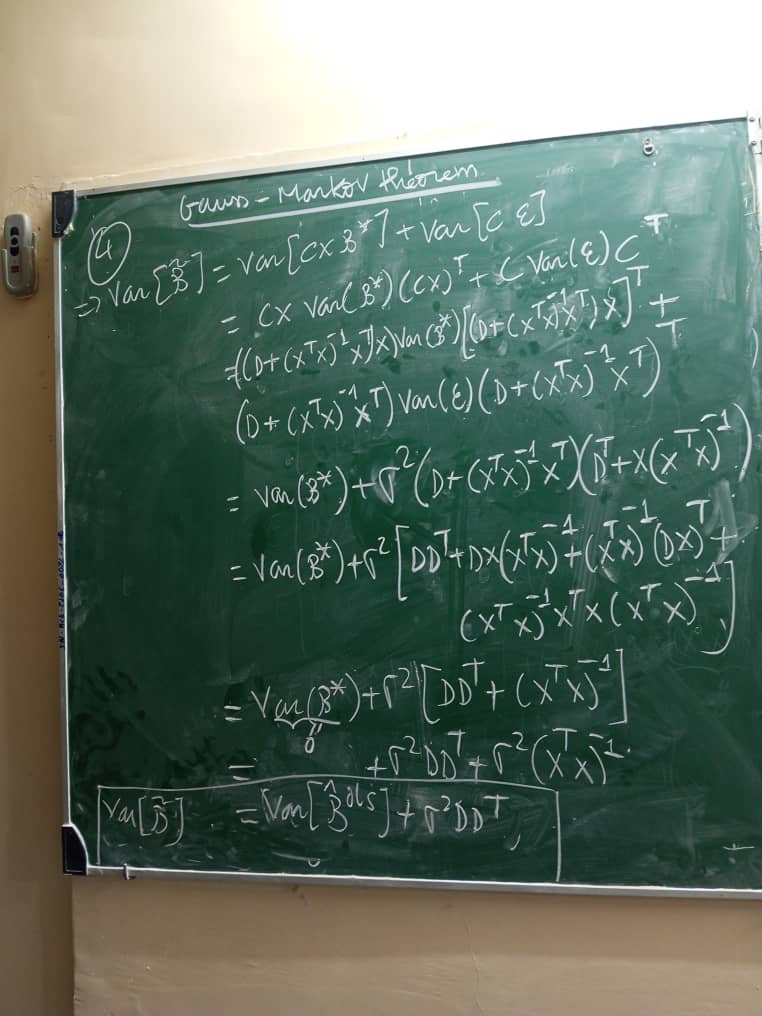 Gauss-Markov theorem
④
⇒ Var[β̃] = Var[CXβ*] + Var[Cε]
= CX Var(β*)(CX)ᵀ + C Var(ε)Cᵀ
= ((D+(XᵀX)⁻¹Xᵀ)X)Var(β*)[(D+(XᵀX)⁻¹Xᵀ)X]ᵀ +
(D+(XᵀX)⁻¹Xᵀ)Var(ε)(D+(XᵀX)⁻¹Xᵀ)ᵀ
= Var(β*)+σ²(D+(XᵀX)⁻¹Xᵀ)(Dᵀ+X(XᵀX)⁻¹)
= Var(β*)+σ²[DDᵀ+DX(XᵀX)⁻¹+(XᵀX)⁻¹(DX)ᵀ+
(XᵀX)⁻¹XᵀX(XᵀX)⁻¹]
= Var(β*)+σ²[DDᵀ+(XᵀX)⁻¹]
0
= +σ²DDᵀ+σ²(XᵀX)⁻¹
Var[β̃] = Var[β̂ᵒˡˢ]+σ²DDᵀ